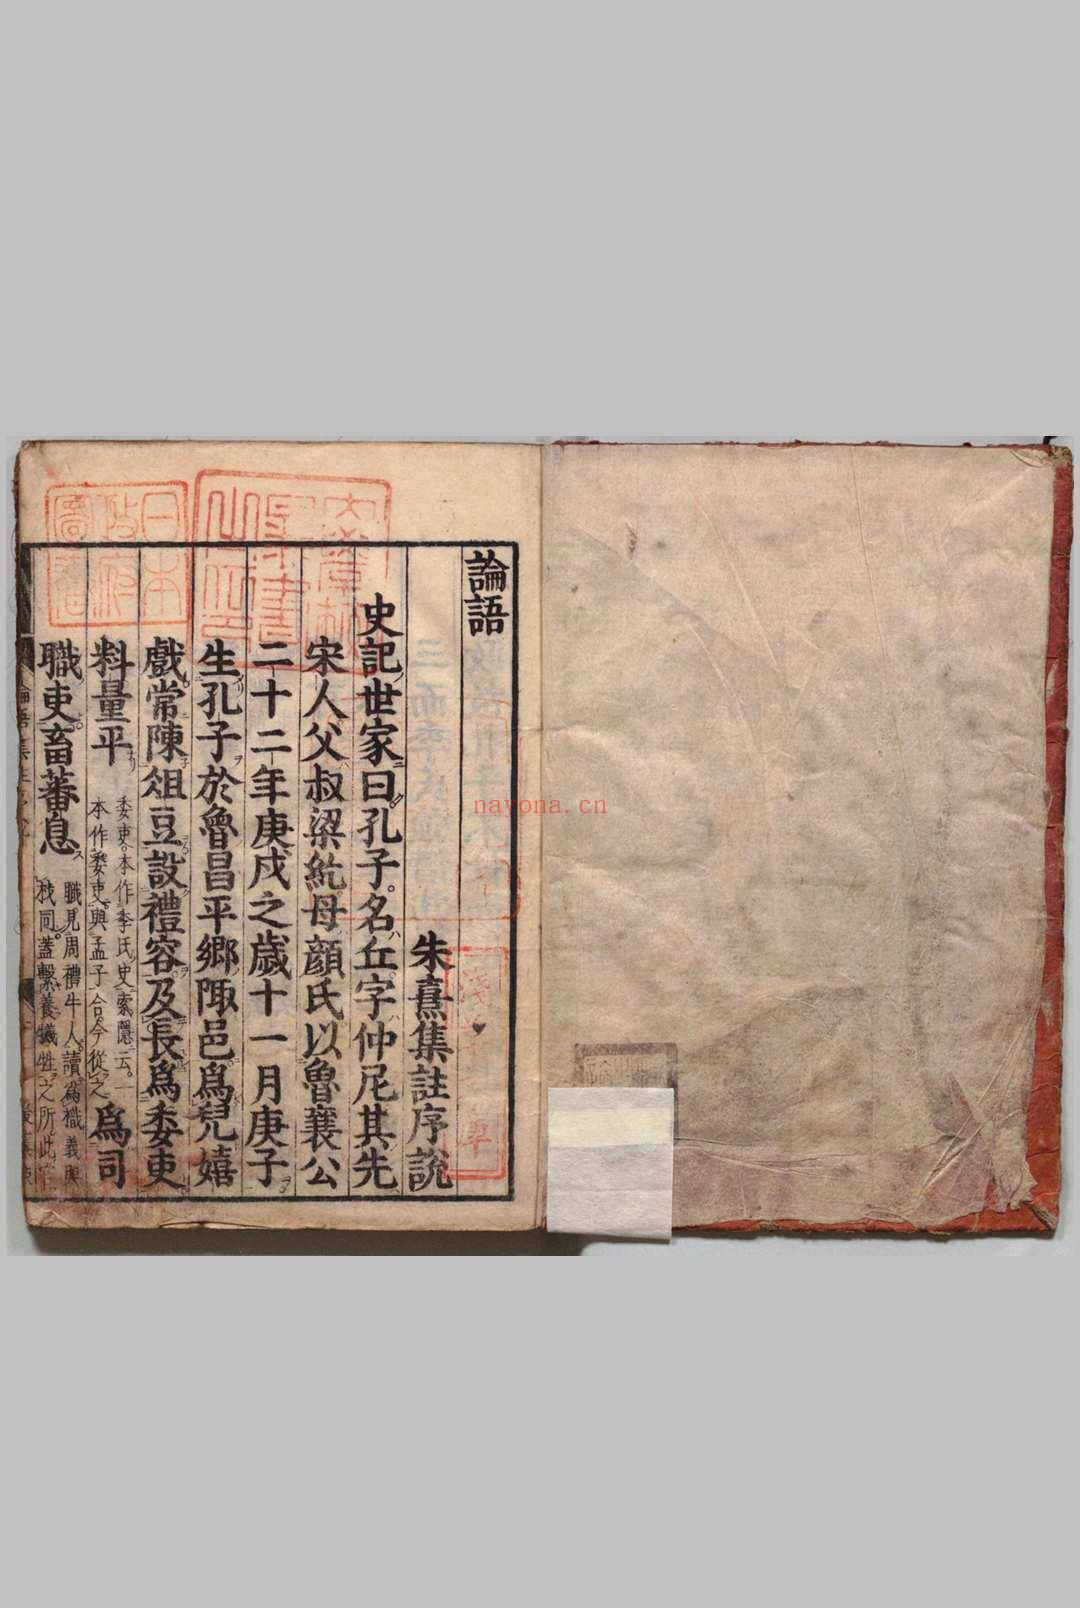 論語
朱熹集註序說
史記世家曰孔子名丘字仲尼其先
宋人父叔梁紇母顏氏以魯襄公
二十二年庚戌之歲十一月庚子
生孔子於魯昌平鄉陬邑爲兒嬉
戲常陳俎豆設禮容及長爲委吏
料量平
委吏本作季氏史索隱云一
本作委吏與孟子合今從之
爲司
職吏畜蕃息
職見周禮牛人讀爲樴義與
杙同蓋繫養犧牲之所此官
日本
政府
圖書
nayona.cn